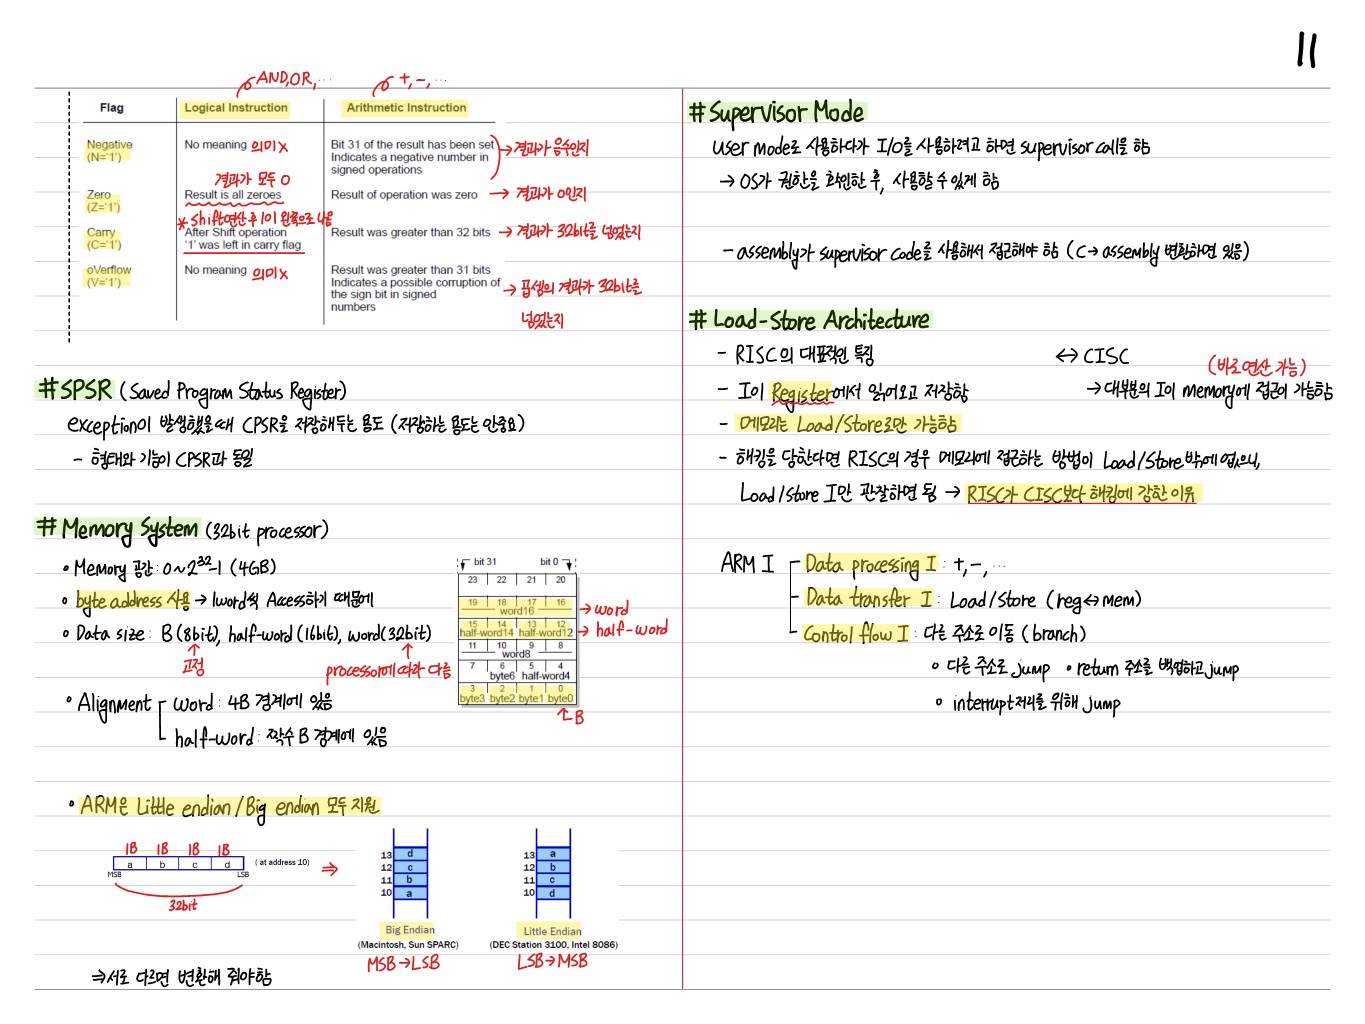 11
AND, OR, ...
+, -, ...
Flag Logical Instruction Arithmetic Instruction
Negative
(N='1')
No meaning 의미 x
Bit 31 of the result has been set
Indicates a negative number in
signed operations
→ 결과가 음수인지
결과가 모두 0
Zero
(Z='1')
Result is all zeroes
Result of operation was zero → 결과가 0인지
* shift연산 후 1이 왼쪽으로 나옴
Carry
(C='1')
After Shift operation
'1' was left in carry flag
Result was greater than 32 bits → 결과가 32bit를 넘었는지
oVerflow
(V='1')
No meaning 의미 x
Result was greater than 31 bits
Indicates a possible corruption of
the sign bit in signed
numbers
→ 뺄셈의 결과가 32bit를
넘었는지
# SPSR (Saved Program Status Register)
exception이 발생했을때 CPSR을 저장해두는 용도 (저장하는 용도는 안중요)
- 형태와 기능이 CPSR과 동일
# Memory System (32bit processor)
• Memory 공간 : 0 ~ 2³²-1 (4GB)
• byte address 사용 → 1word씩 Access하기 때문에
• Data size : B (8bit), half-word (16bit), word (32bit)
고정
processor에 따라 다름
• Alignment
word : 4B 경계에 있음
half-word : 짝수 B 경계에 있음
bit 31 bit 0
23 22 21 20
19 18 17 16
word16
→ word
15 14 13 12
half-word14 half-word12
→ half-word
11 10 9 8
word8
7 6 5 4
byte6 half-word4
3 2 1 0
byte3 byte2 byte1 byte0
B
• ARM은 Little endian / Big endian 모두 지원
1B 1B 1B 1B
a b c d ( at address 10) ⇒
MSB LSB
32bit
13 d
12 c
11 b
10 a
Big Endian
(Macintosh, Sun SPARC)
MSB → LSB
13 a
12 b
11 c
10 d
Little Endian
(DEC Station 3100, Intel 8086)
LSB → MSB
⇒ 서로 다르면 변환해 줘야함
# Supervisor Mode
user mode로 사용하다가 I/O를 사용하려고 하면 supervisor call을 함
→ OS가 권한을 확인한 후, 사용할 수 있게 함
- assembly가 supervisor code를 사용해서 접근해야 함 (C → assembly 변환하면 있음)
# Load-Store Architecture
- RISC의 대표적인 특징 ↔ CISC
(바로 연산 가능)
- I이 Register에서 읽어오고 저장함 → 대부분의 I이 memory에 접근이 가능함
- 메모리는 Load/Store로만 가능함
- 해킹을 당한다면 RISC의 경우 메모리에 접근하는 방법이 Load/Store밖에 없으니,
Load/store I만 관찰하면 됨 → RISC가 CISC보다 해킹에 강한 이유
ARM I
Data processing I : +, -, ...
Data transfer I : Load/Store (reg ↔ mem)
Control flow I : 다른 주소로 이동 (branch)
• 다른 주소로 jump • return 주소를 백업하고 jump
• interrupt처리를 위해 jump